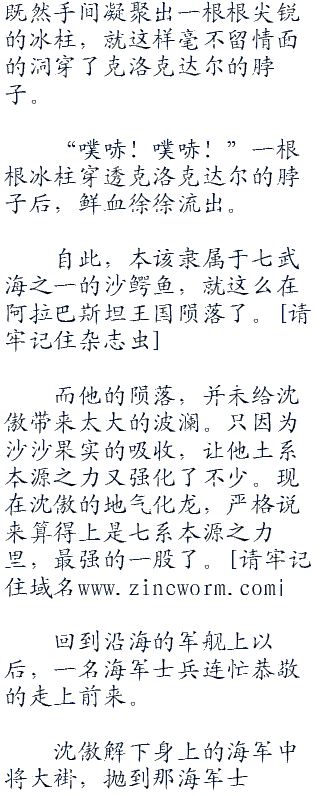 既然手间凝聚出一根根尖锐
的冰柱，就这样毫不留情面
的洞穿了克洛克达尔的脖
子。
“噗哧！噗哧！”一根
根冰柱穿透克洛克达尔的脖
子后，鲜血徐徐流出。
自此，本该隶属于七武
海之一的沙鳄鱼，就这么在
阿拉巴斯坦王国陨落了。[请
牢记住杂志虫]
而他的陨落，并未给沈
傲带来太大的波澜。只因为
沙沙果实的吸收，让他土系
本源之力又强化了不少。现
在沈傲的地气化龙，严格说
来算得上是七系本源之力
里，最强的一股了。[请牢记
住域名www.zincworm.com¡
回到沿海的军舰上以
后，一名海军士兵连忙恭敬
的走上前来。
沈傲解下身上的海军中
将大褂，抛到那海军士